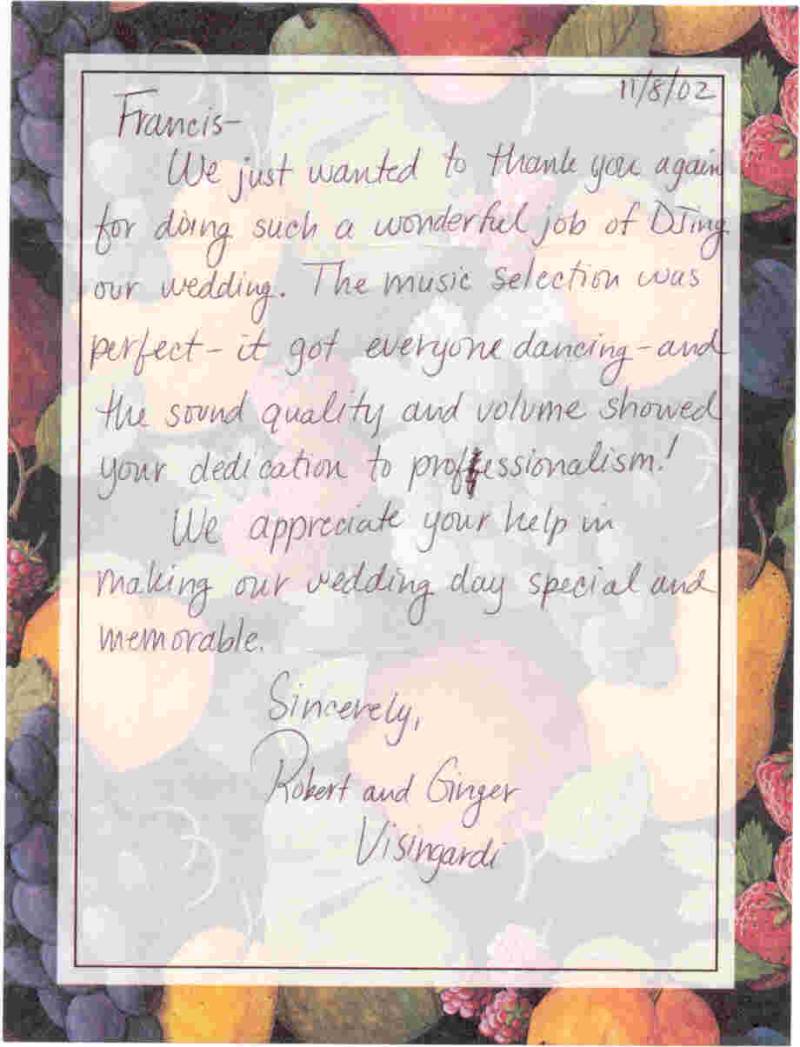 11/8/02
Francis-
We just wanted to thank you again
for doing such a wonderful job of DJing
our wedding. The music selection was
perfect - it got everyone dancing - and
the sound quality and volume showed
your dedication to professionalism!
We appreciate your help in
making our wedding day special and
memorable.
Sincerely,
Robert and Ginger
Visingardi